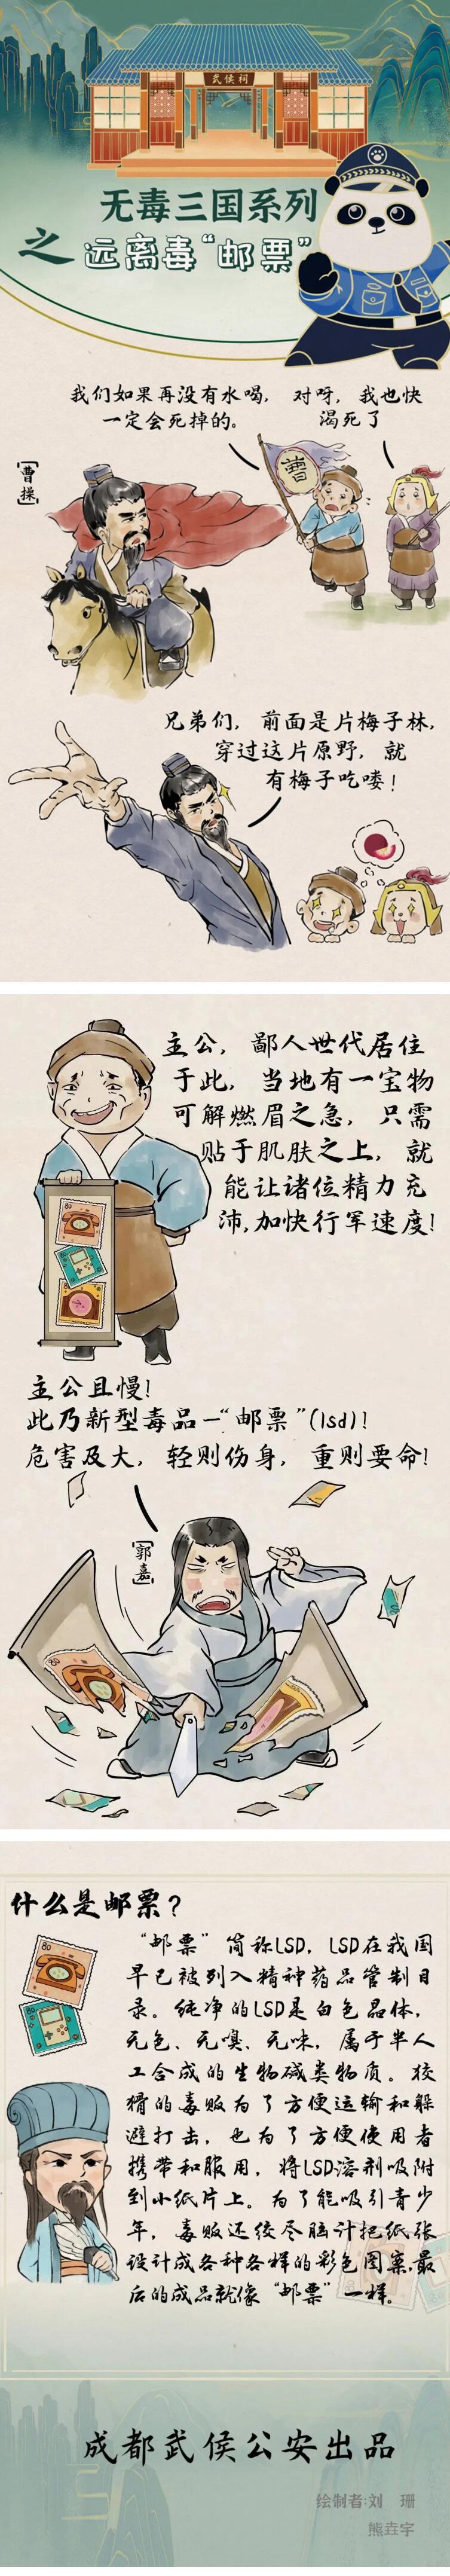 武侯祠
无毒三国系列
之远离毒“邮票”
我们如果再没有水喝，
一定会死掉的。
对呀，我也快
渴死了
曹
【曹操】
兄弟们，前面是片梅子林，
穿过这片原野，就
有梅子吃喽！
主公，鄙人世代居住
于此，当地有一宝物
可解燃眉之急，只需
贴于肌肤之上，就
能让诸位精力充
沛，加快行军速度！
80
主公且慢！
此乃新型毒品—“邮票”(lsd)！
危害及大，轻则伤身，重则要命！
【郭嘉】
什么是邮票？
80
80
“邮票”简称LSD，LSD在我国
早已被列入精神药品管制目
录。纯净的LSD是白色晶体，
无色、无嗅、无味，属于半人
工合成的生物碱类物质。狡
猾的毒贩为了方便运输和躲
避打击，也为了方便使用者
携带和服用，将LSD溶剂吸附
到小纸片上。为了能吸引青少
年，毒贩还绞尽脑计把纸张
设计成各种各样的彩色图案，最
后的成品就像“邮票”一样。
成都武侯公安出品
绘制者：刘 珊
熊垚宇